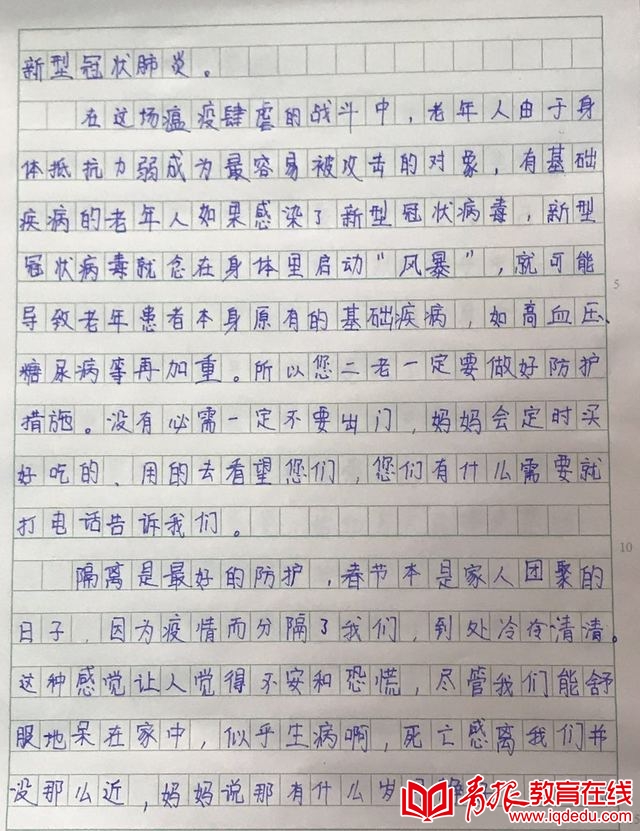 新型冠状肺炎。
在这场瘟疫肆虐的战斗中，老年人由于身
体抵抗力弱成为最容易被攻击的对象，有基础
疾病的老年人如果感染了新型冠状病毒，新型
冠状病毒就会在身体里启动“风暴”，就可能
导致老年患者本身原有的基础疾病，如高血压、
糖尿病等再加重。所以您二老一定要做好防护
措施。没有必需一定不要出门，妈妈会定时买
好吃的、用的去看望您们，您们有什么需要就
打电话告诉我们。
5
隔离是最好的防护，春节本是家人团聚的
10
日子，因为疫情而分隔了我们，到处冷冷清清。
这种感觉让人觉得不安和恐慌，尽管我们能舒
服地呆在家中，似乎生病啊，死亡感离我们并
没那么近，妈妈说那有什么岁
青报教育在线
www.iqdedu.com